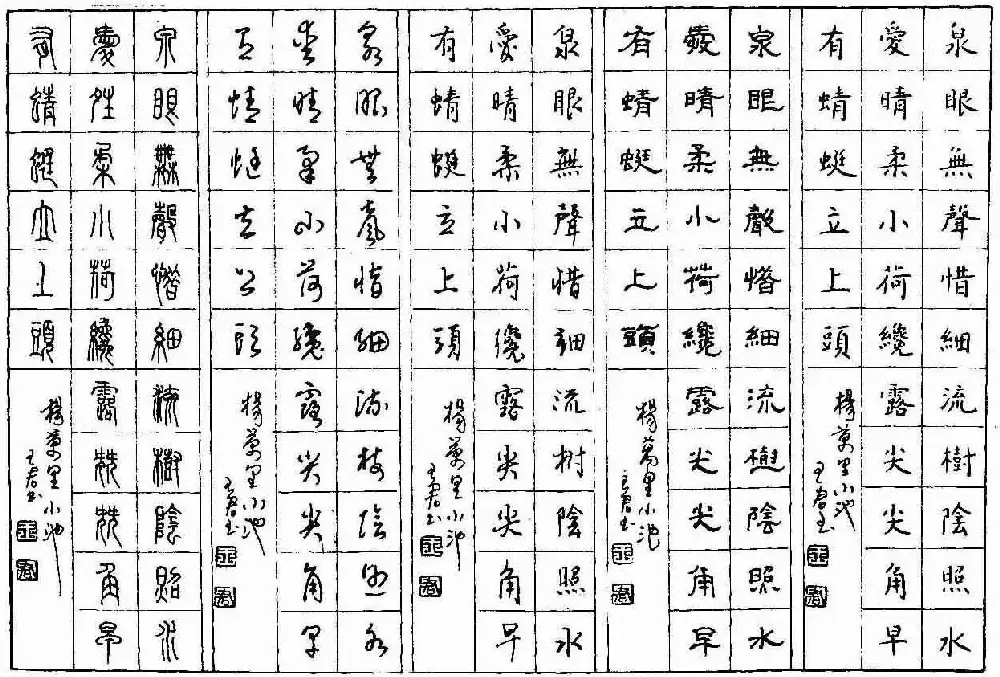 泉眼無聲惜細流樹陰照水
愛晴柔小荷纔露尖尖角早
有蜻蜓立上頭
楊萬里小池
泉眼無聲惜細流樹陰照水
愛晴柔小荷纔露尖尖角早
有蜻蜓立上頭
楊萬里小池
泉眼無聲惜細流树陰照水
愛晴柔小荷纔露尖尖角早
有蜻蜓立上頭
楊萬里小池
泉眼無聲惜細流樹陰照水
愛晴柔小荷纔露尖尖角早
有蜻蜓立上頭
楊萬里小池
泉眼無聲惜細流樹陰照水
愛晴柔小荷纔露尖尖角早
有蜻蜓立上頭
楊萬里小池